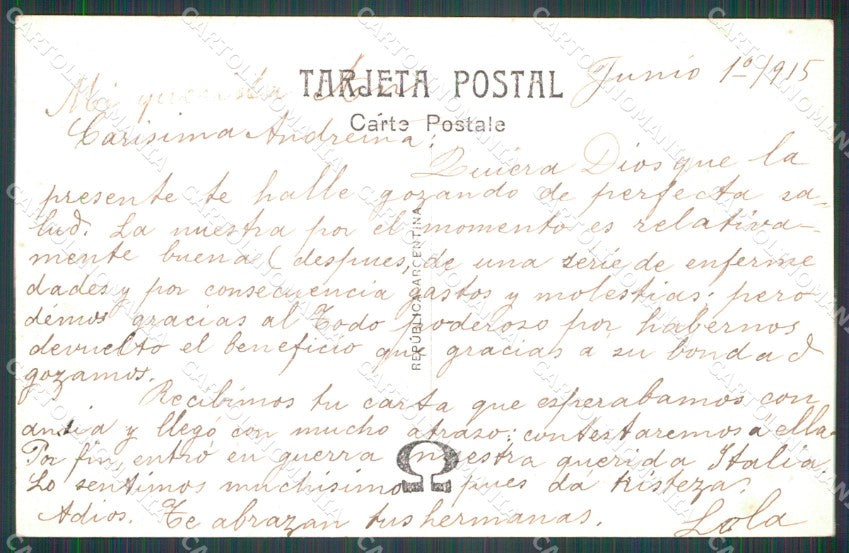 TARJETA POSTAL
Carte Postale
Junio 1º/915
Mi querida
Carisima Andreina:
Quiera Dios que la
presente te halle gozando de perfecta sa-
lud. La nuestra por el momento es relativa-
mente buena (despues de una serie de enferme
dades y por consecuencia gastos y molestias. pero
démos gracias al Todo poderoso por habernos
devuelto el beneficio que gracias a su bondad
gozamos.
Recibimos tu carta que esperabamos con
ansia y llegó con mucho atraso; contestaremos a ella.
Por fin entró en guerra nuestra querida Italia.
Lo sentimos muchisimo pues da tristeza.
Adios. Te abrazan tus hermanas.
Lola
REPÚBLICA ARGENTINA
CARTOLINOMANIA